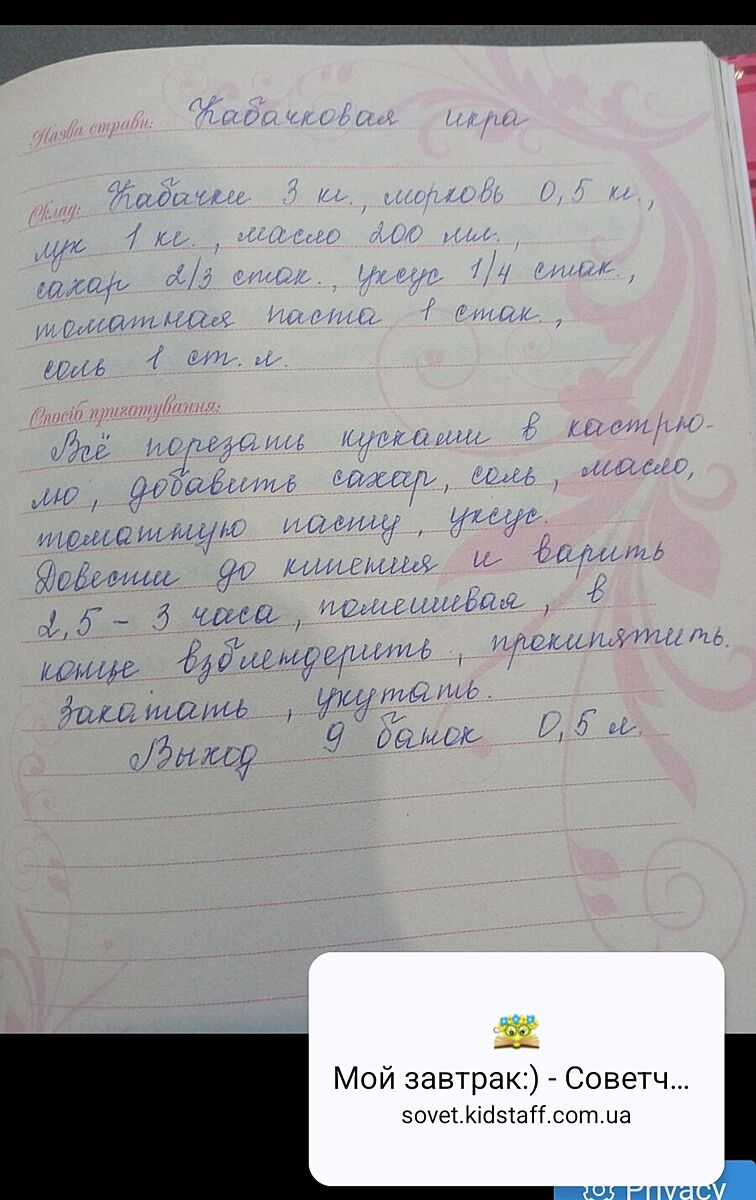 Назва страви: Кабачковая икра
Склад: Кабачки 3 кг., морковь 0,5 кг.,
лук 1 кг., масло 200 мл.,
сахар 2/3 стак., уксус 1/4 стак.,
томатная паста 1 стак.,
соль 1 ст. л.
Спосіб приготування:
Всё порезать кусками в кастрю-
лю, добавить сахар, соль, масло,
томатную пасту, уксус.
Довести до кипения и варить
2,5 - 3 часа, помешивая, в
конце взблендерить, прокипятить.
Закатать, укутать.
Выход 9 банок 0,5 л.
Мой завтрак:) - Советч...
sovet.kidstaff.com.ua
Privacy